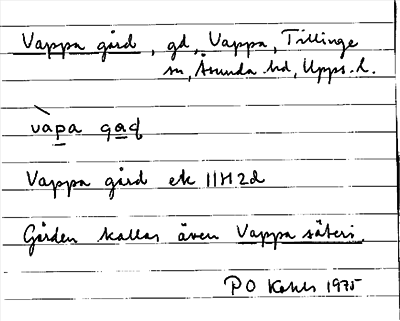 Vappa gård, gd, Vappa, Tillinge
sn, Åsunda hd, Upps. l.
vàpa
Vappa gård ek 11H2d
Gården kallas även Vappa säteri.
PO 1975